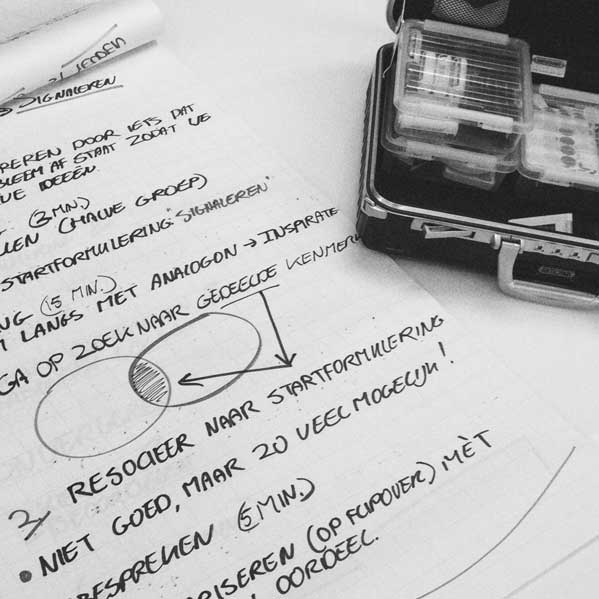 SIGNALEREN
DOOR IETS DAT
AF STAAT ZODAT JE
IDEEËN.
(3 MIN.)
(HALVE GROEP)
STARTFORMULERING: 'SIGNALEREN'
(15 MIN.)
LANGS MET ANALOGON → INSPIRATIE
GA OP ZOEK NAAR GEDEELDE KENMER
3, RESOCIEER NAAR STARTFORMULERING
• NIET GOED, MAAR ZO VEEL MOGELIJK!
BESPREKEN (5 MIN.)
RISEREN (OP FLIPOVER) MÈT
OORDEEL.